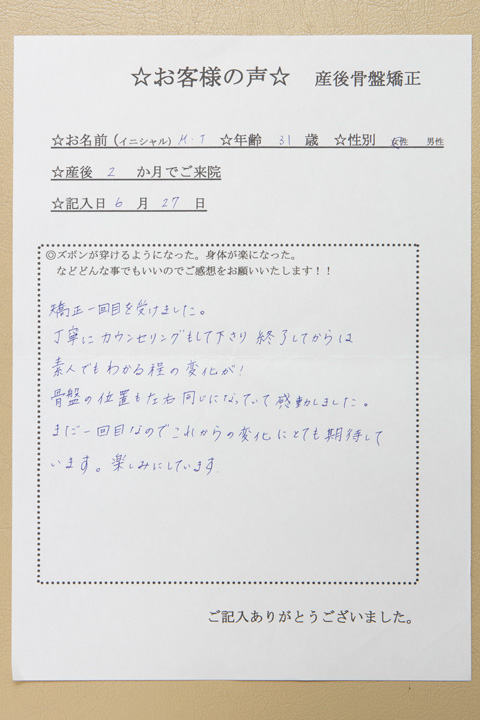 ☆お客様の声☆ 産後骨盤矯正
☆お名前(イニシャル) M・T ☆年齢 31 歳 ☆性別 女性 男性
☆産後 2 か月でご来院
☆記入日 6 月 27 日
◎ズボンが穿けるようになった。身体が楽になった。
などどんな事でもいいのでご感想をお願いいたします!!
矯正一回目を受けました。
丁寧にカウンセリングもして下さり 終了してからは
素人でもわかる程の変化が!
骨盤の位置も左右同じになっていて感動しました。
まだ一回目なのでこれからの変化にとても期待して
います。楽しみにしています
ご記入ありがとうございました。